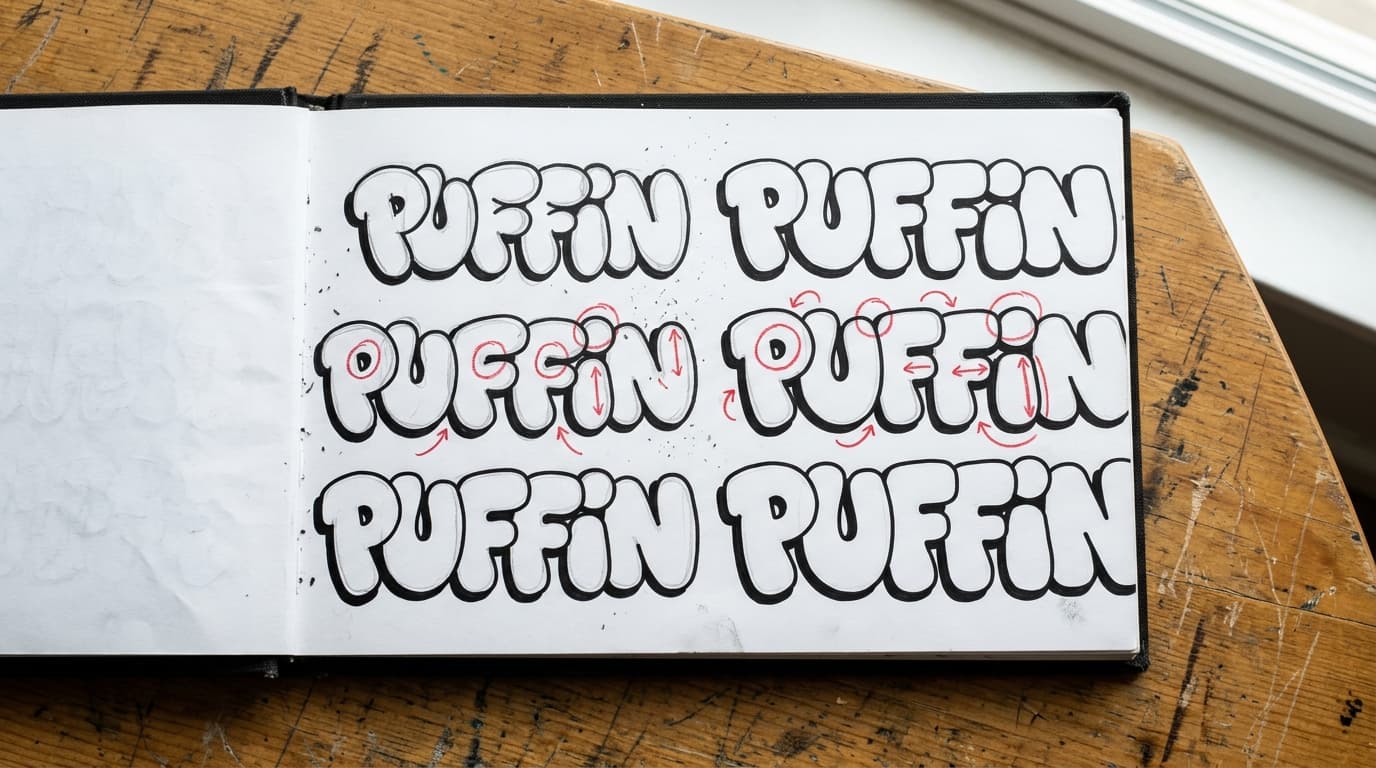 PUFFiN PUFFiN
PUFFiN PUFFiN
PUFFiN PUFFiN